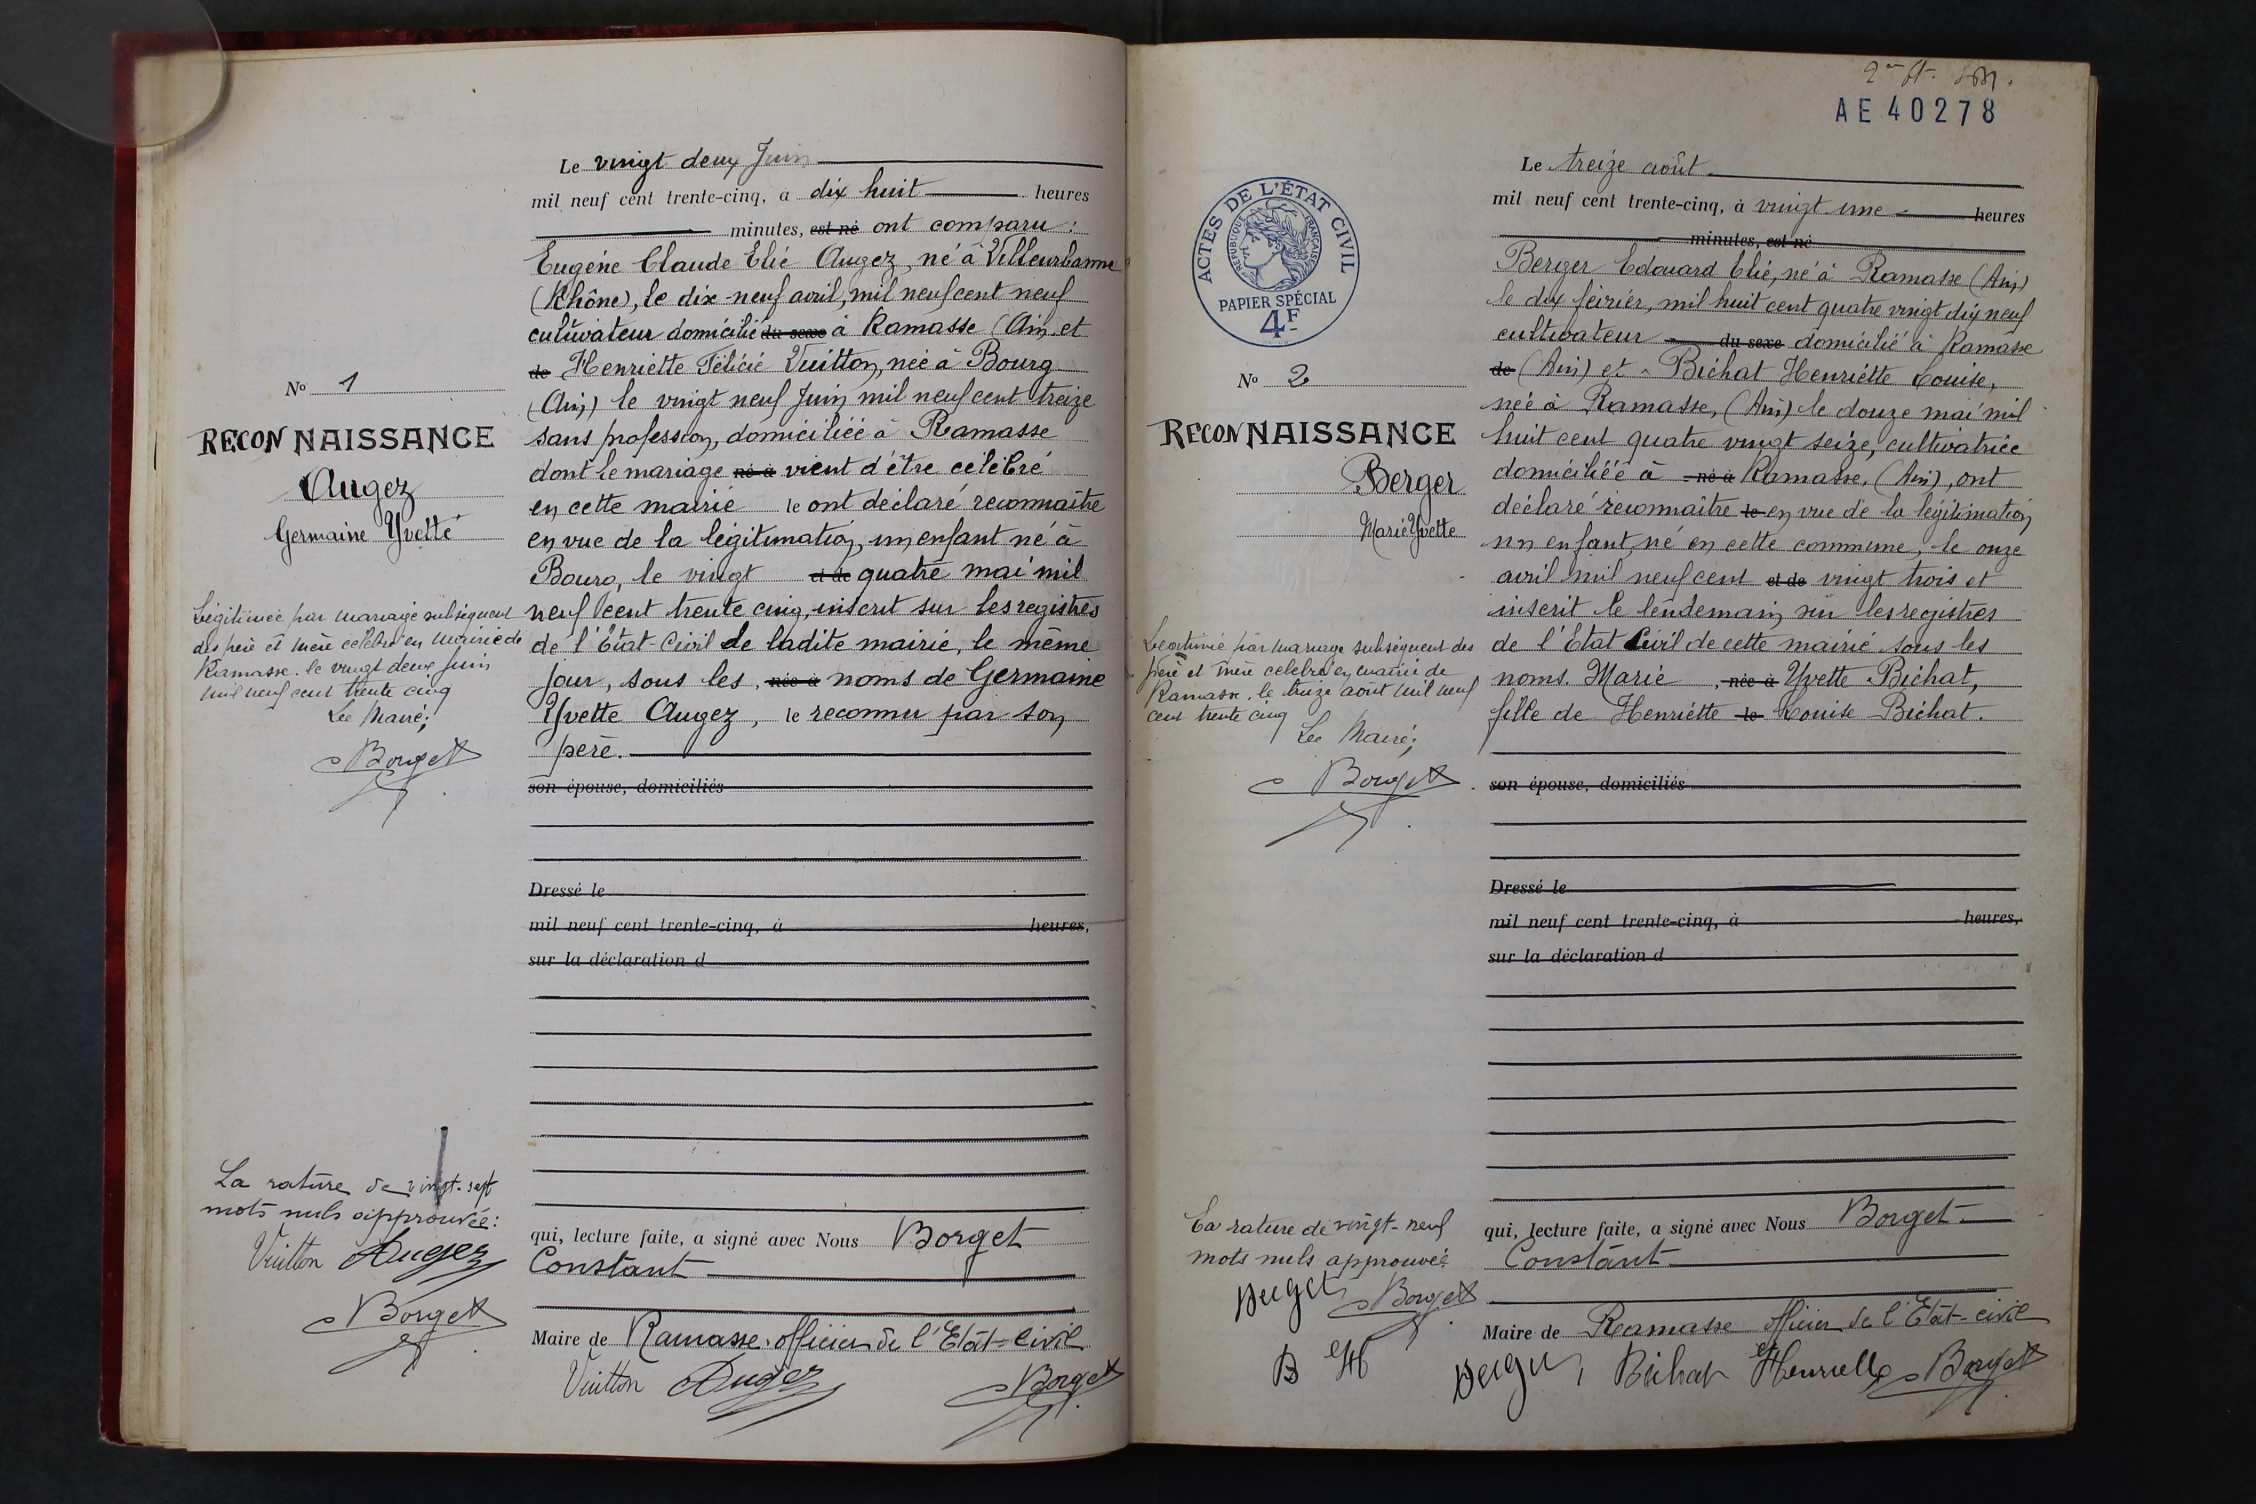 Le vingt deux Juin
mil neuf cent trente-cinq, à dix huit heures
minutes, est né ont comparu :
Eugène Claude Elie Augez, né à Villeurbanne
(Rhône), le dix-neuf avril, mil neuf cent neuf
cultivateur domicilié du sexe à Ramasse (Ain, et
de Henriette Félicie Vuitton, née à Bourg
(Ain) le vingt neuf Juin mil neuf cent treize
sans profession, domiciliée à Ramasse
dont le mariage né à vient d'être célébré
en cette mairie le ont déclaré reconnaître
en vue de la légitimation, un enfant né à
Bourg, le vingt et de quatre mai mil
neuf cent trente cinq, inscrit sur les registres
de l'Etat-Civil de ladite mairie, le même
jour, sous les, née à noms de Germaine
Yvette Augez, le reconnu par son
père.
son épouse, domiciliés
Dressé le
mil neuf cent trente-cinq, à heures,
sur la déclaration d
qui, lecture faite, a signé avec Nous Borget
Constant
Maire de Ramasse, officier de l'Etat-civil
Vuitton Augez Borget
No 1
RECONNAISSANCE
Augez
Germaine Yvette
Légitimée par mariage subséquent
des père et mère célébré en mairie de
Ramasse, le vingt deux juin
mil neuf cent trente cinq
Le Maire;
Borget
La rature de vingt-sept
mots nuls approuvée:
Vuitton Augez
Borget
AE 40278
Le treize août
mil neuf cent trente-cinq, à vingt une heures
minutes, est né
Berger Edouard Elie, né à Ramasse (Ain)
le dix février, mil huit cent quatre vingt dix neuf
cultivateur du sexe domicilié à Ramasse
de (Ain) et Bichat Henriette Louise,
née à Ramasse, (Ain) le douze mai mil
huit cent quatre vingt seize, cultivatrice
domiciliée à né à Ramasse, (Ain), ont
déclaré reconnaître le en vue de la légitimation
un enfant, né en cette commune, le onze
avril mil neuf cent et de vingt trois et
inscrit le lendemain sur les registres
de l'Etat Civil de cette mairie sous les
noms. Marie , née à Yvette Bichat,
fille de Henriette le Louise Bichat.
son épouse, domiciliés
Dressé le
mil neuf cent trente-cinq, à heures,
sur la déclaration d
qui, lecture faite, a signé avec Nous Borget
Constant
Maire de Ramasse officier de l'Etat-civil
Berger Bichat Henriette Borget
ACTES DE L'ÉTAT CIVIL
RÉPUBLIQUE FRANÇAISE
PAPIER SPÉCIAL
4F
No 2
RECONNAISSANCE
Berger
Marie Yvette
Légitimé par mariage subséquent des
père et mère célébré en mairie de
Ramasse, le treize août mil neuf
cent trente cinq
Le Maire;
Borget
La rature de vingt-neuf
mots nuls approuvée
Berger Borget
B H